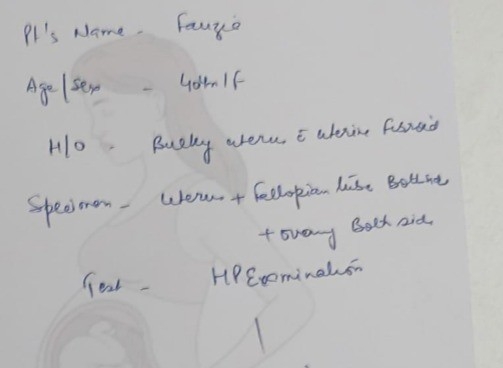 Pt's Name - Fauzia
Age/Sex - 40Yr/F
H/O - Bulky uterus c̄ uterine fibroid
Specimen - Uterus + Fallopian tube Both side
+ ovary Both side
Test - HP Examination